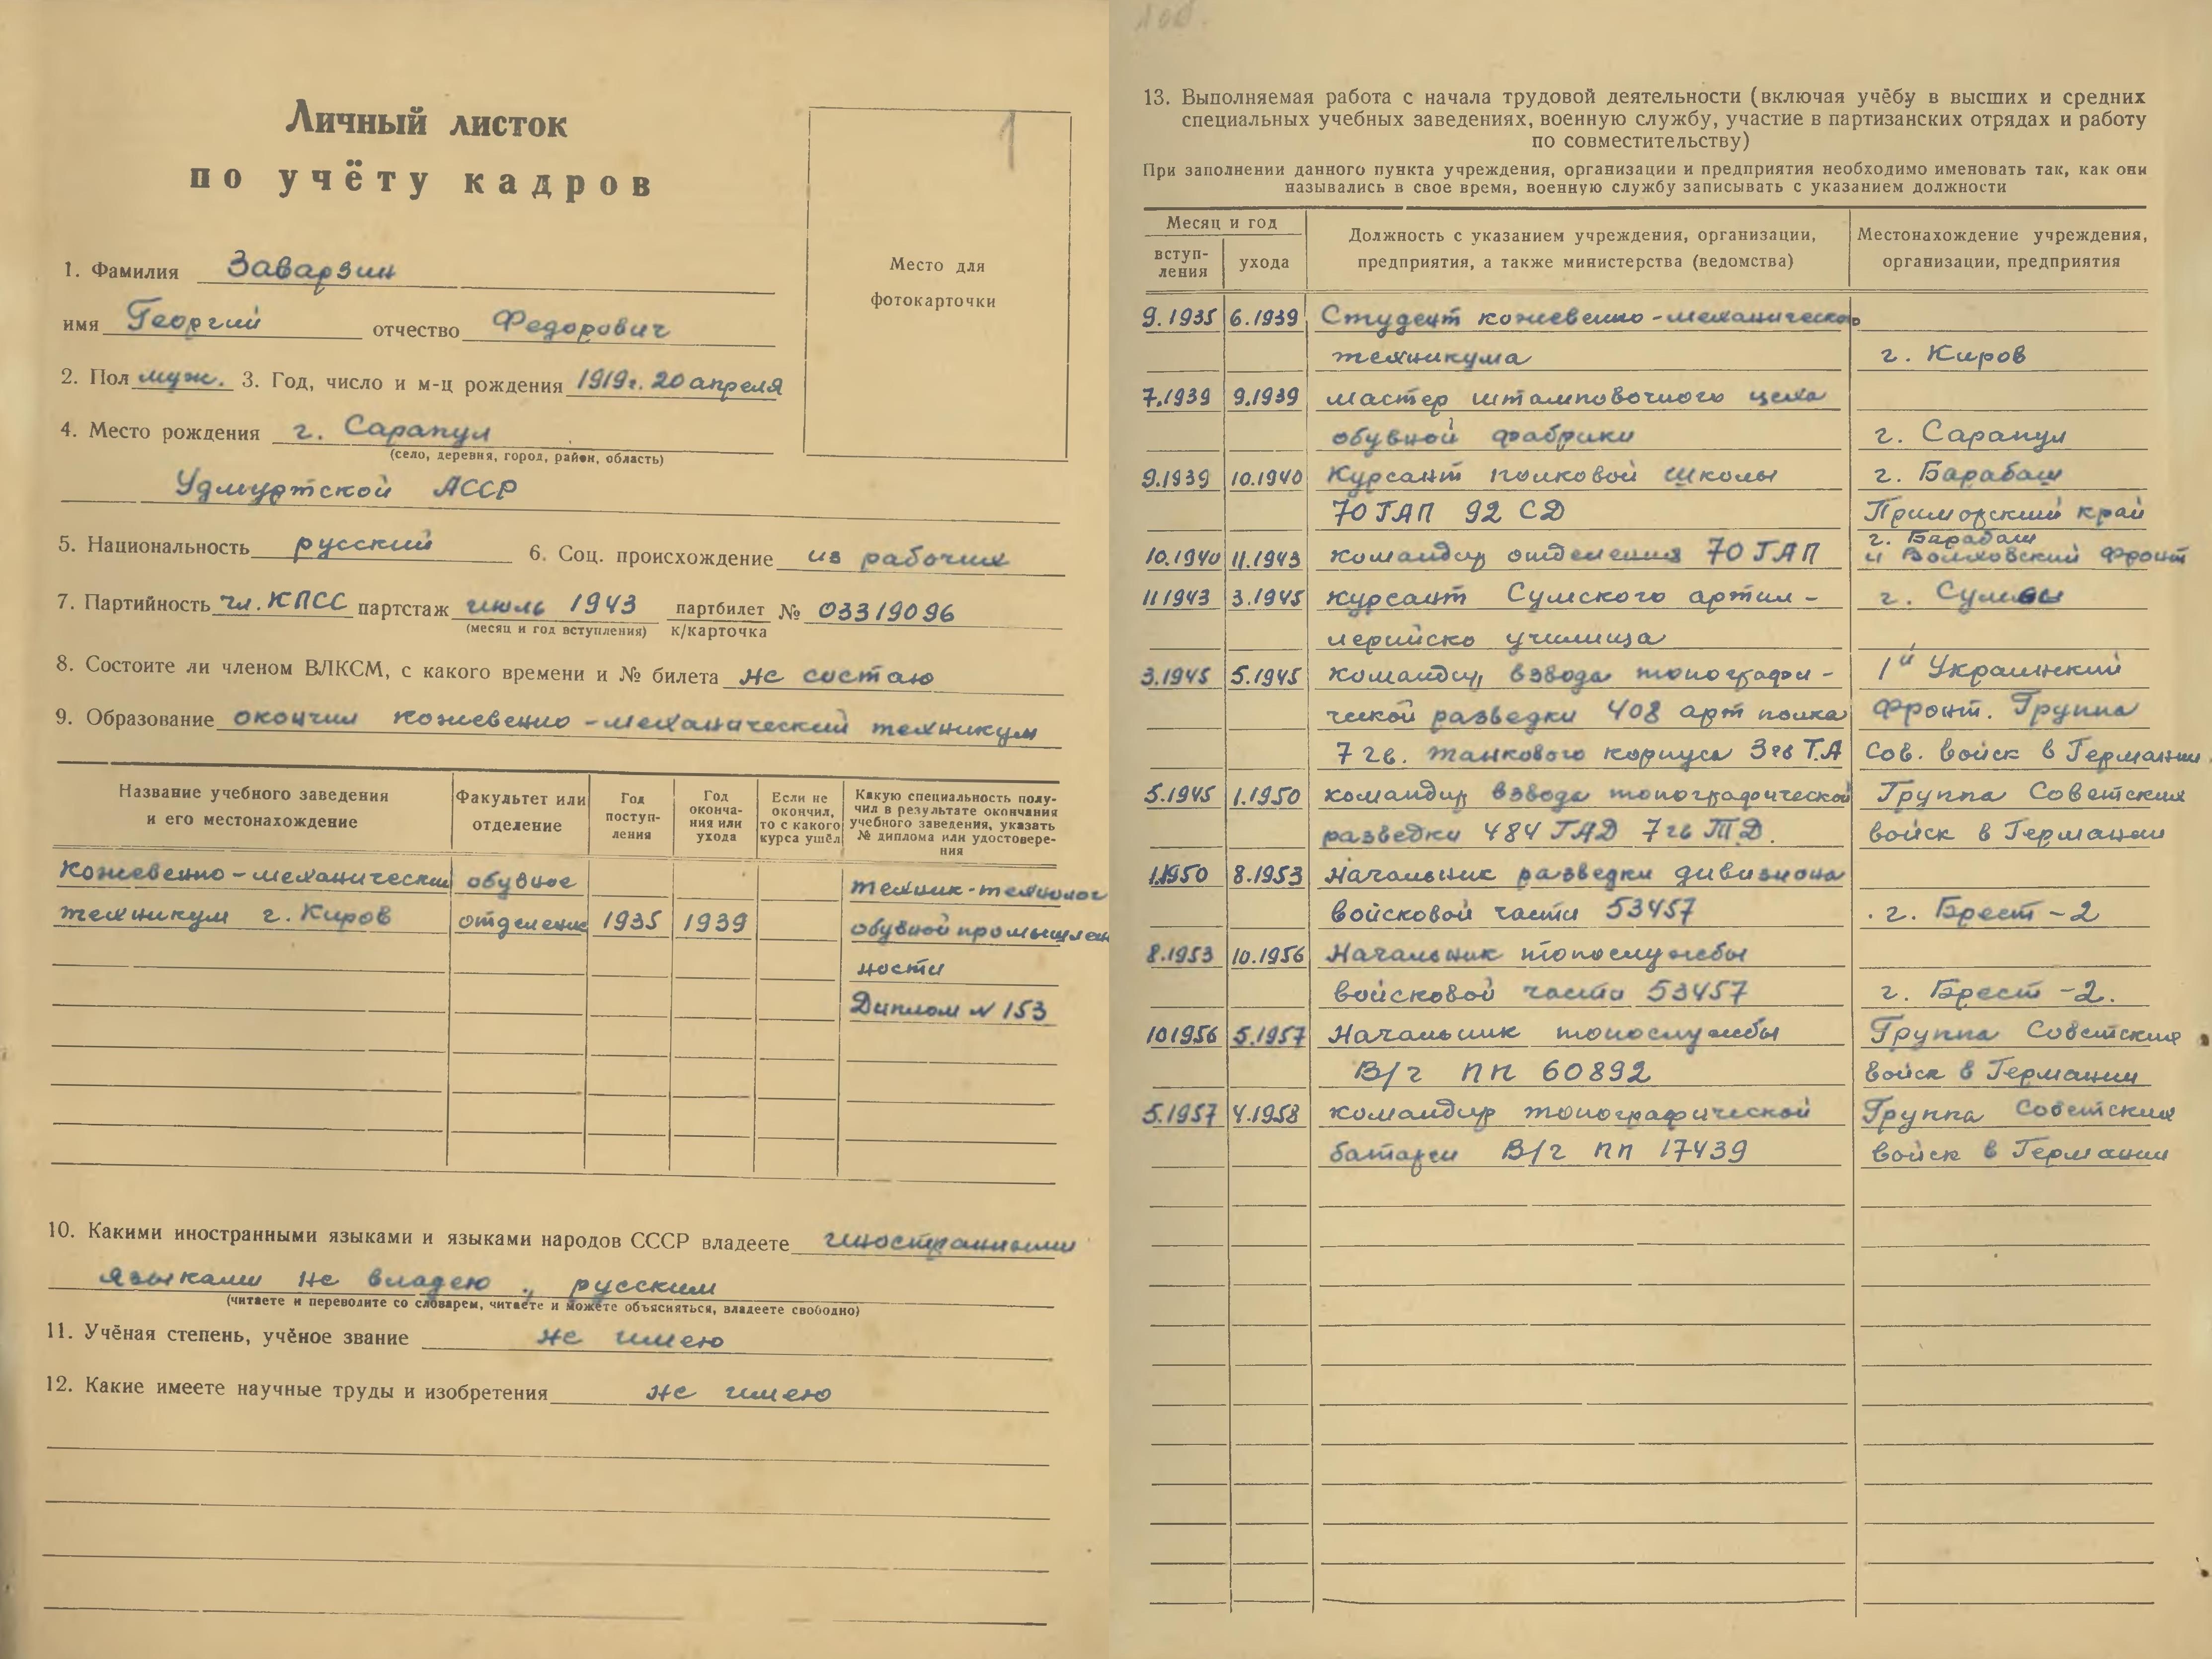 Личный листок
по учёту кадров
1
Место для
фотокарточки
1. Фамилия Заварзин
имя Георгий отчество Федорович
2. Пол муж. 3. Год, число и м-ц рождения 1919г. 20 апреля
4. Место рождения г. Сарапул
(село, деревня, город, район, область)
Удмуртской АССР
5. Национальность русский 6. Соц. происхождение из рабочих
7. Партийность чл. КПСС партстаж июль 1943 партбилет № 03319096
(месяц и год вступления) к/карточка
8. Состоите ли членом ВЛКСМ, с какого времени и № билета не состаю
9. Образование окончил кожевенно-механический техникум
Название учебного заведения
и его местонахождение
Факультет или
отделение
Год
поступ-
ления
Год
оконча-
ния или
ухода
Если не
окончил,
то с какого
курса ушёл
Какую специальность полу-
чил в результате окончания
учебного заведения, указать
№ диплома или удостовере-
ния
Кожевенно-механически обувное техник-технолог
техникум г. Киров отделение 1935 1939 обувной промышлен
ности
Диплом № 153
10. Какими иностранными языками и языками народов СССР владеете иностранными
языками не владею, русским
(читаете и переводите со словарем, читаете и можете объясняться, владеете свободно)
11. Учёная степень, учёное звание не имею
12. Какие имеете научные труды и изобретения не имею
13. Выполняемая работа с начала трудовой деятельности (включая учёбу в высших и средних
специальных учебных заведениях, военную службу, участие в партизанских отрядах и работу
по совместительству)
При заполнении данного пункта учреждения, организации и предприятия необходимо именовать так, как они
назывались в свое время, военную службу записывать с указанием должности
Месяц и год
вступ-
ления
ухода
Должность с указанием учреждения, организации,
предприятия, а также министерства (ведомства)
Местонахождение учреждения,
организации, предприятия
9.1935 6.1939 Студент кожевенно-механического
техникума г. Киров
7.1939 9.1939 мастер штамповочного цеха
обувной фабрики г. Сарапул
9.1939 10.1940 Курсант полковой школы г. Барабаш
70 ГАП 92 СД Приморский край
г. Барабаш
10.1940 11.1943 командир отделения 70 ГАП и Волховский фронт
11 1943 3.1945 курсант Сумского артил- г. Сумы
лерийско училища
3.1945 5.1945 командир взвода топографи- 1й Украинский
ческой разведки 408 арт полка фронт. Группа
7 гв. танкового корпуса 3 гв Т.А Сов. войск в Германии
5.1945 1.1950 командир взвода топографической Группа Советских
разведки 484 ГАД 7 гв ТД. войск в Германии
1.1950 8.1953 Начальник разведки дивизиона
войсковой части 53457 г. Брест-2
8.1953 10.1956 Начальник топослужбы
войсковой части 53457 г. Брест-2.
10 1956 5.1957 Начальник топослужбы Группа Советских
В/ч пп 60892 войск в Германии
5.1957 4.1958 командир топографической Группа Советских
батареи В/ч пп 17439 войск в Германии